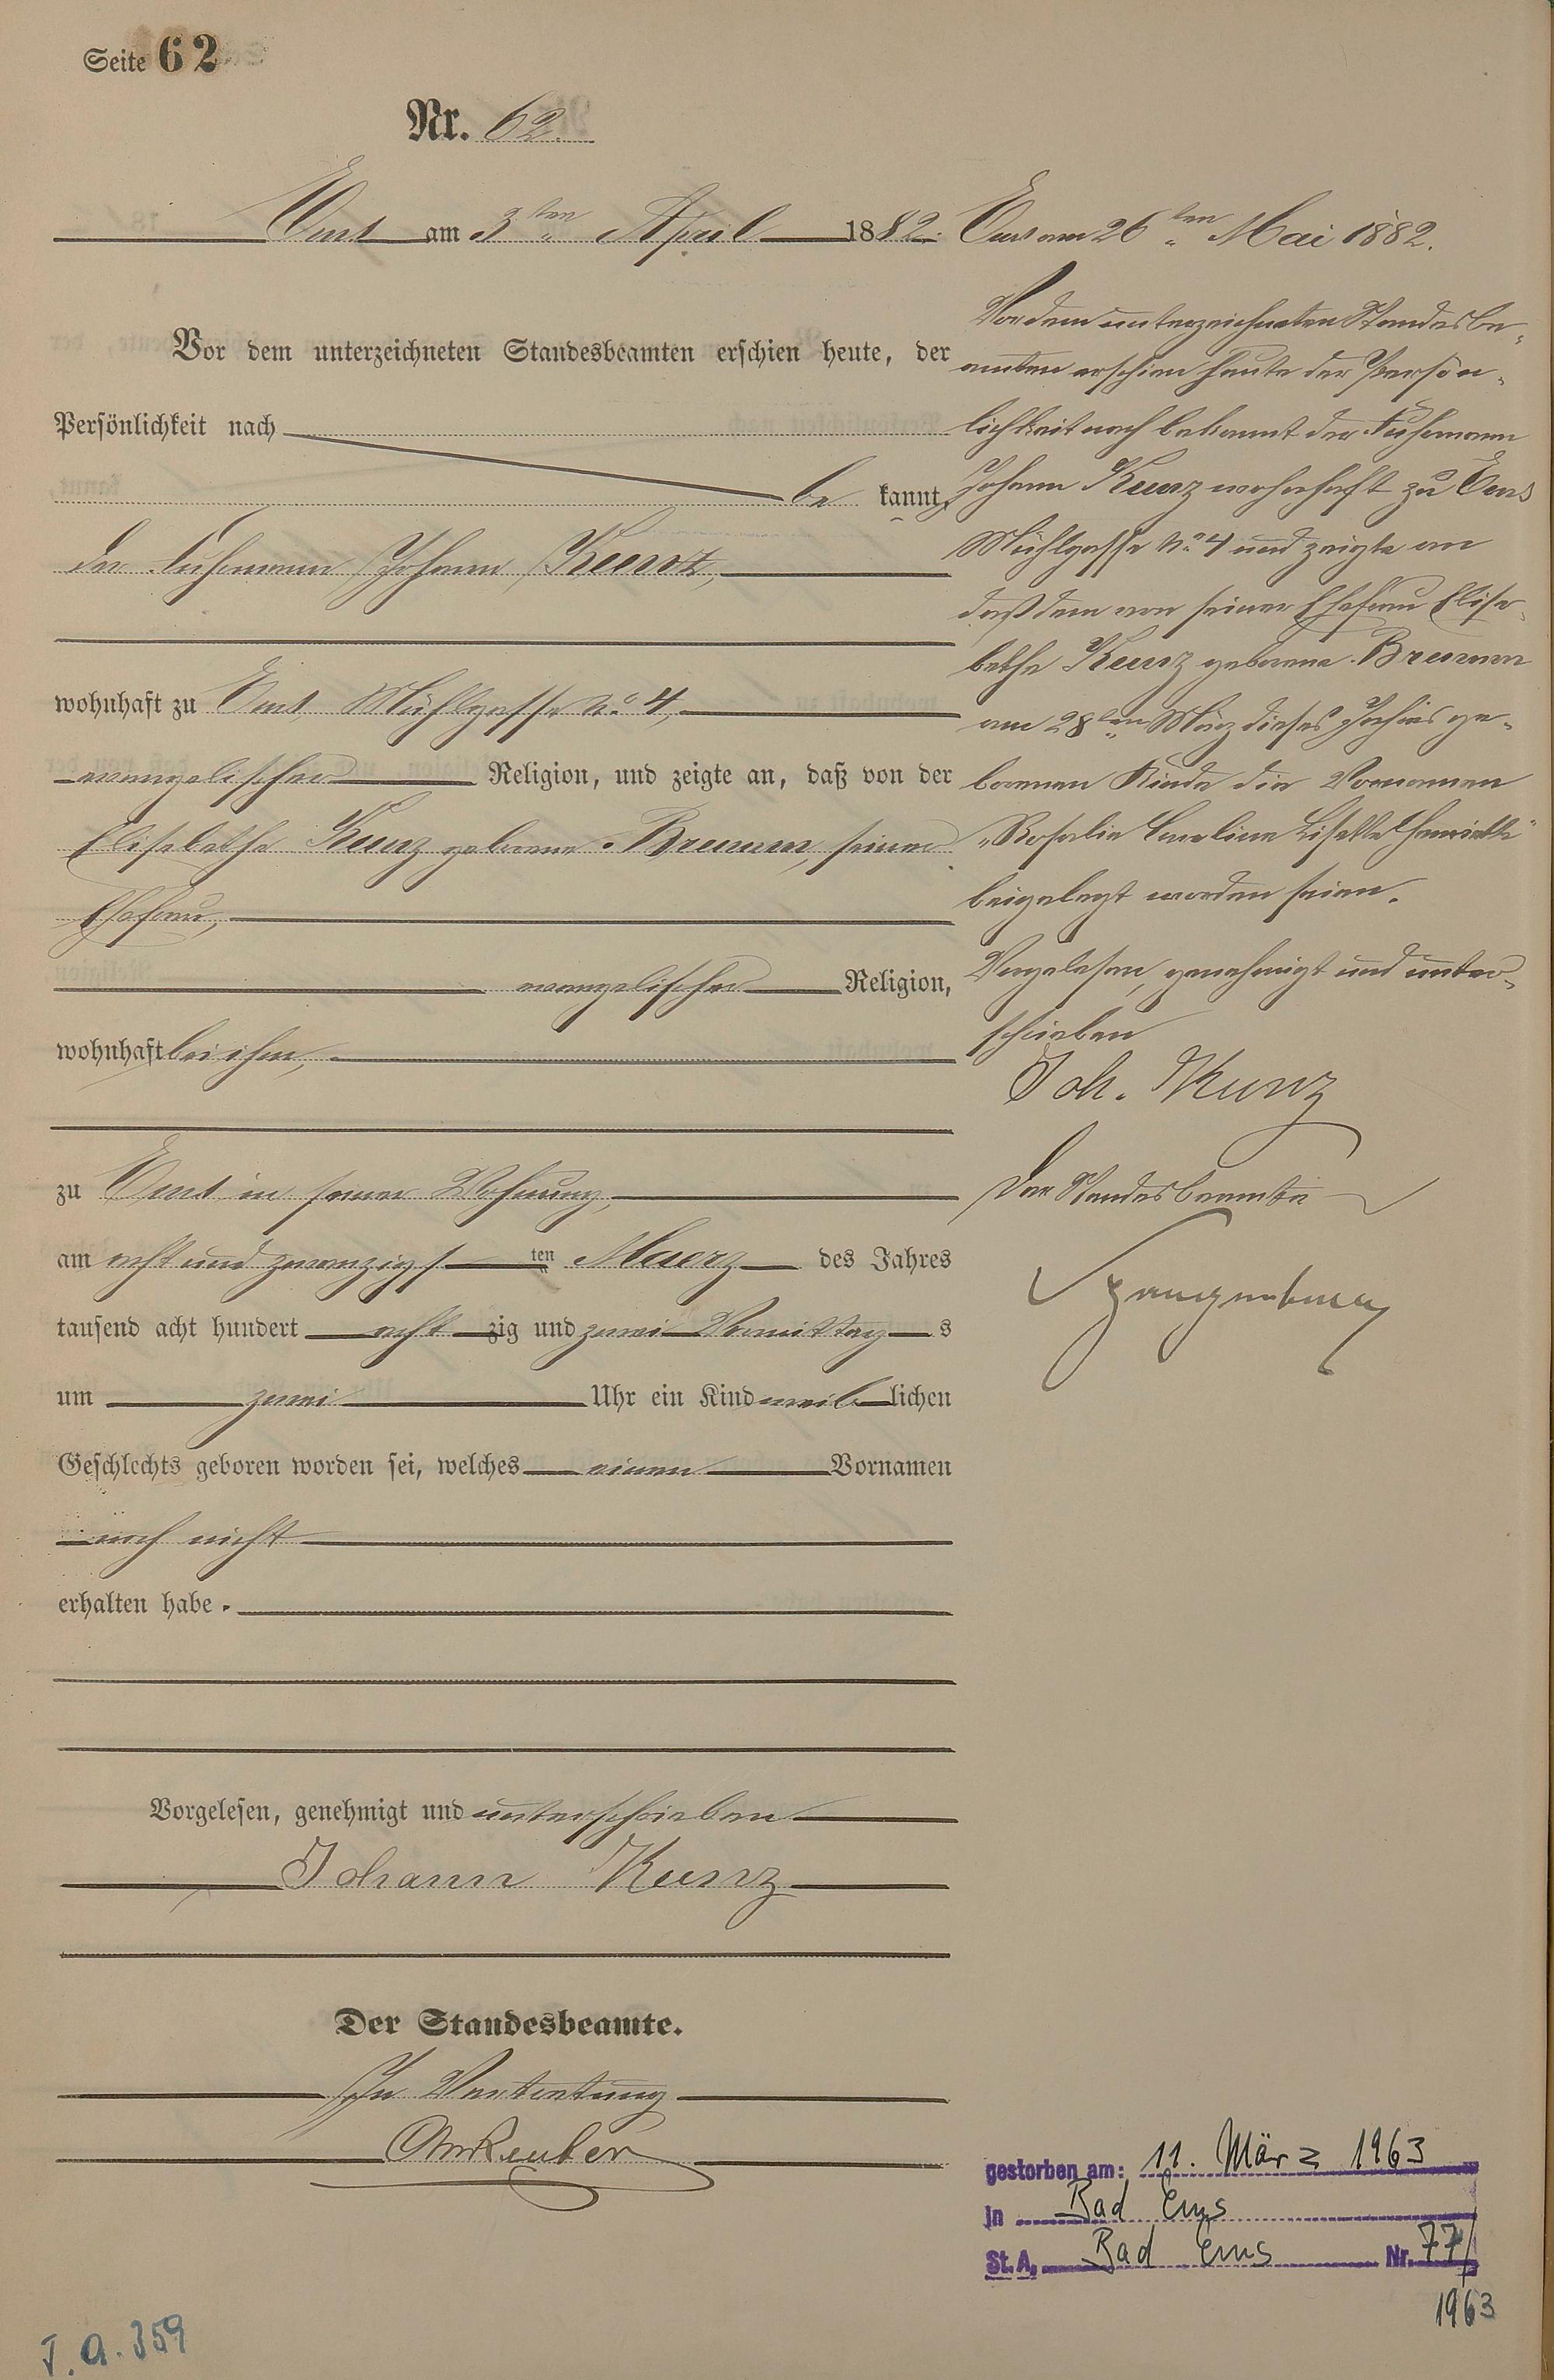 Seite 62
Nr. 62.
Ems am 3ten April 1882.
Vor dem unterzeichneten Standesbeamten erschien heute, der
Persönlichkeit nach
be kannt,
der Fuhrmann Johann Kunz,
wohnhaft zu Ems Mühlgasse No. 4,
evangelischer Religion, und zeigte an, daß von der
Elisabethe Kunz geborene Brumm, seiner
Ehefrau,
evangelischer Religion,
wohnhaft bei ihm,
zu Ems in seiner Wohnung,
am acht und zwanzigsten Maerz des Jahres
tausend acht hundert acht zig und zwei Vormittags
um zwei Uhr ein Kind weiblichen
Geschlechts geboren worden sei, welches einen Vornamen
noch nicht
erhalten habe.
Vorgelesen, genehmigt und unterschrieben
Johann Kunz
Der Standesbeamte.
In Vertretung
Ems am 26ten Mai 1882.
Vor dem unterzeichneten Standesbe-
amten erschien heute der Persön-
lichkeit nach bekannt der Fuhrmann
Johann Kunz wohnhaft zu Ems
Mühlgasse No. 4 und zeigte an
daß dem von seiner Ehefrau Elisa-
bethe Kunz geborene Brumm
am 28ten März dieses Jahres ge-
borenen Kinde die Vornamen
"Rosalie Caroline Lisette Henriette"
beigelegt worden seien.
Vorgelesen, genehmigt und unter-
schrieben
Joh. Kunz
Der Standesbeamte
gestorben am: 11. März 1963
in Bad Ems
St. A. Bad Ems Nr. 77/
1963
J. a. 359